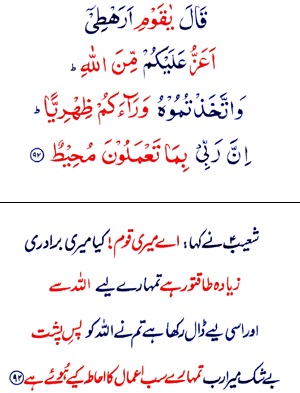 قَالَ يٰقَوْمِ اَرَهْطِىْۤ
اَعَزُّ عَلَيْكُمْ مِّنَ اللّٰهِ ؕ
وَاتَّخَذْتُمُوْهُ وَرَآءَكُمْ ظِهْرِيًّا ؕ
اِنَّ رَبِّىْ بِمَا تَعْمَلُوْنَ مُحِيْطٌ ﴿۹۲﴾
شعیبؑ نے کہا: اے میری قوم! کیا میری برادری
زیادہ طاقتور ہے تمہارے لیے اللہ سے
اور اسی لیے ڈال رکھا ہے تم نے اللہ کو پسِ پشت
بے شک میرا رب تمہارے سب اعمال کا احاطہ کیے ہُوئے ہے ﴿۹۲﴾